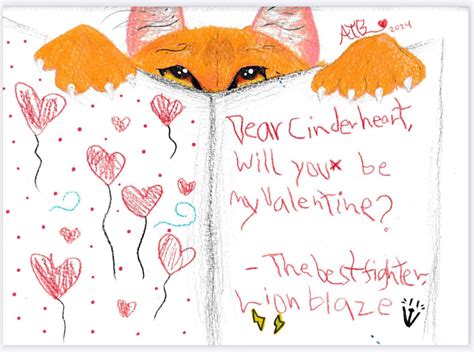 ATB 2024
Dear Cinderheart,
Will you be
my Valentine?
- The best fighter,
Lionblaze